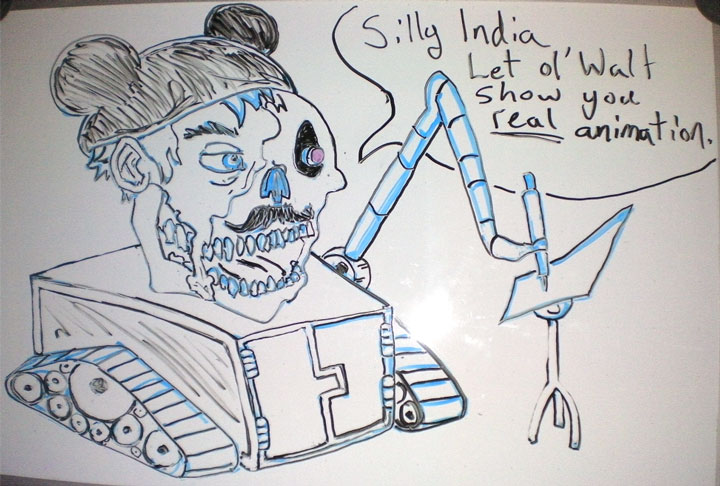 Silly India
Let ol' Walt
show you
real animation.